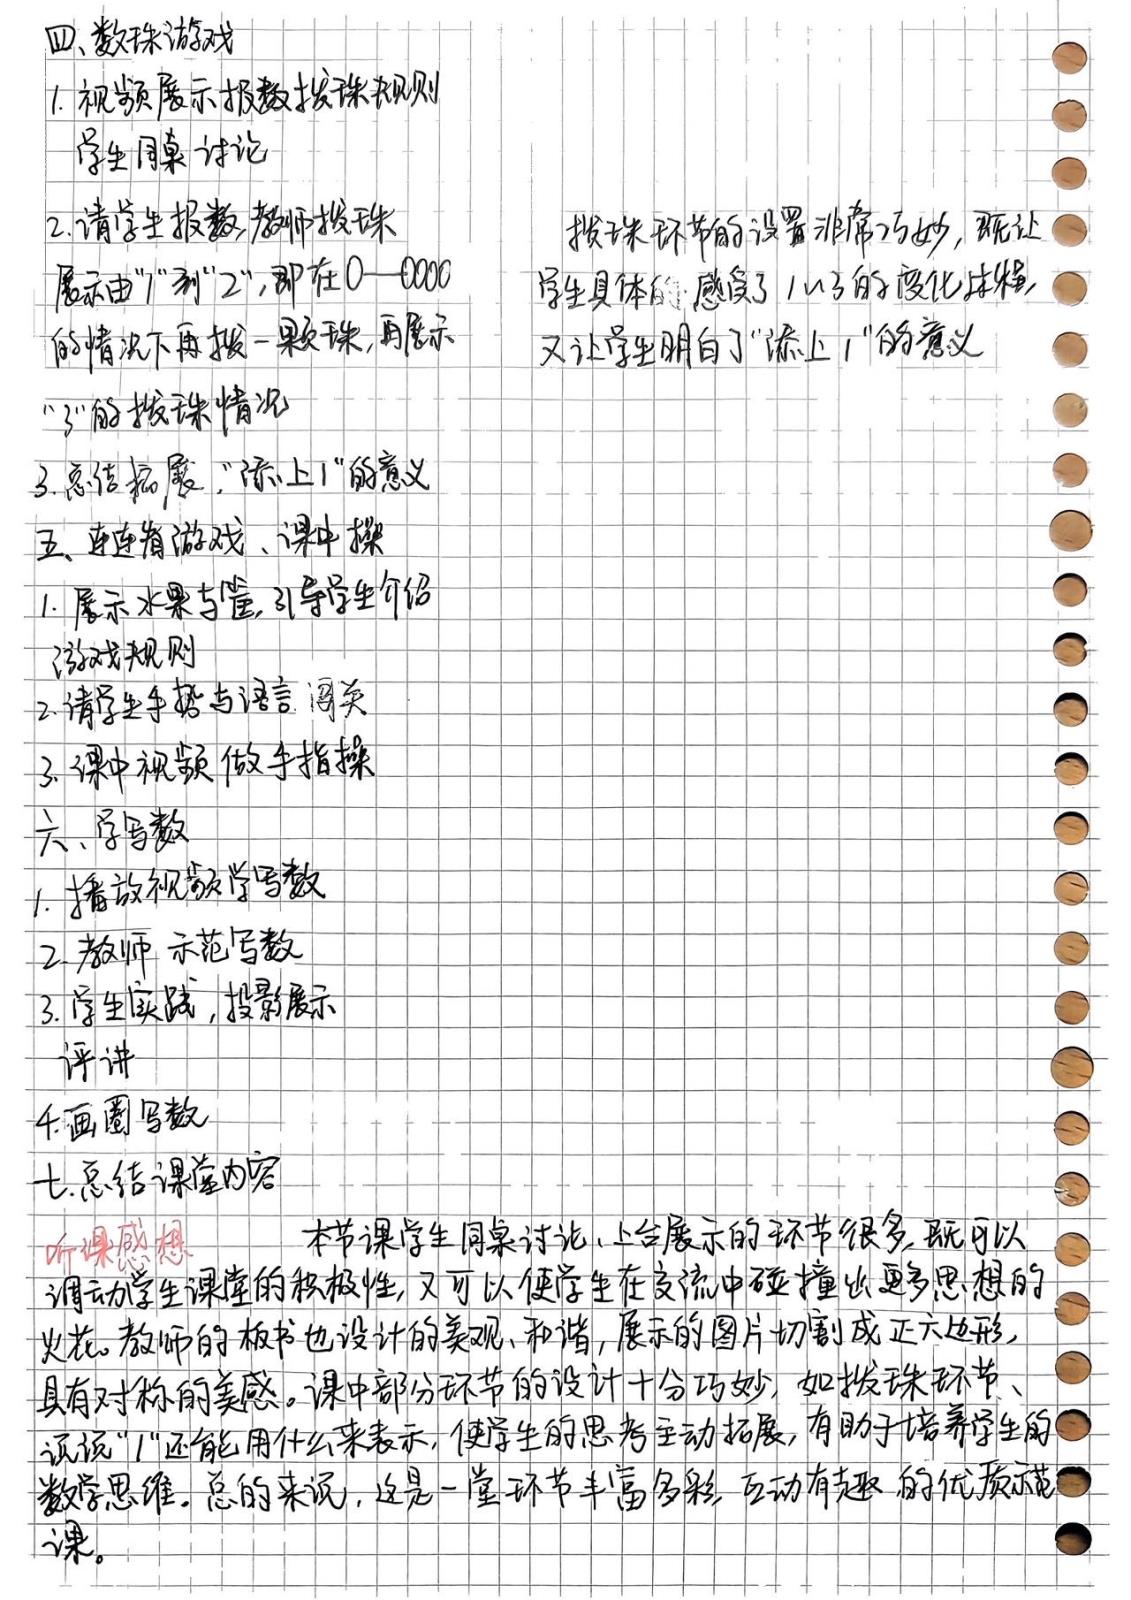 四、数珠游戏
1. 视频展示报数拨珠规则
学生同桌讨论
2. 请学生报数,教师拨珠
展示由"1"到"2",即在0—0000
的情况下再拨一颗珠,再展示
"3"的拨珠情况
3. 总结拓展,"添上1"的意义
拨珠环节的设置非常巧妙,既让
学生具体的感受了1~3的变化过程,
又让学生明白了"添上1"的意义
五、连连看游戏、课中操
1. 展示水果与筐,引导学生介绍
游戏规则
2. 请学生手势与语言 闯关
3. 课中视频做手指操
六、学写数
1. 播放视频学写数
2. 教师示范写数
3. 学生实践,投影展示
评讲
4. 画圈写数
七、总结课堂内容
听课感想 本节课学生同桌讨论、上台展示的环节很多,既可以
调动学生课堂的积极性,又可以使学生在交流中碰撞出更多思想的
火花。教师的板书也设计的美观、和谐,展示的图片切割成正六边形,
具有对称的美感。课中部分环节的设计十分巧妙,如拨珠环节、
说说"1"还能用什么来表示,使学生的思考主动拓展,有助于培养学生的
数学思维。总的来说,这是一堂环节丰富多彩,互动有趣的优质示范
课。